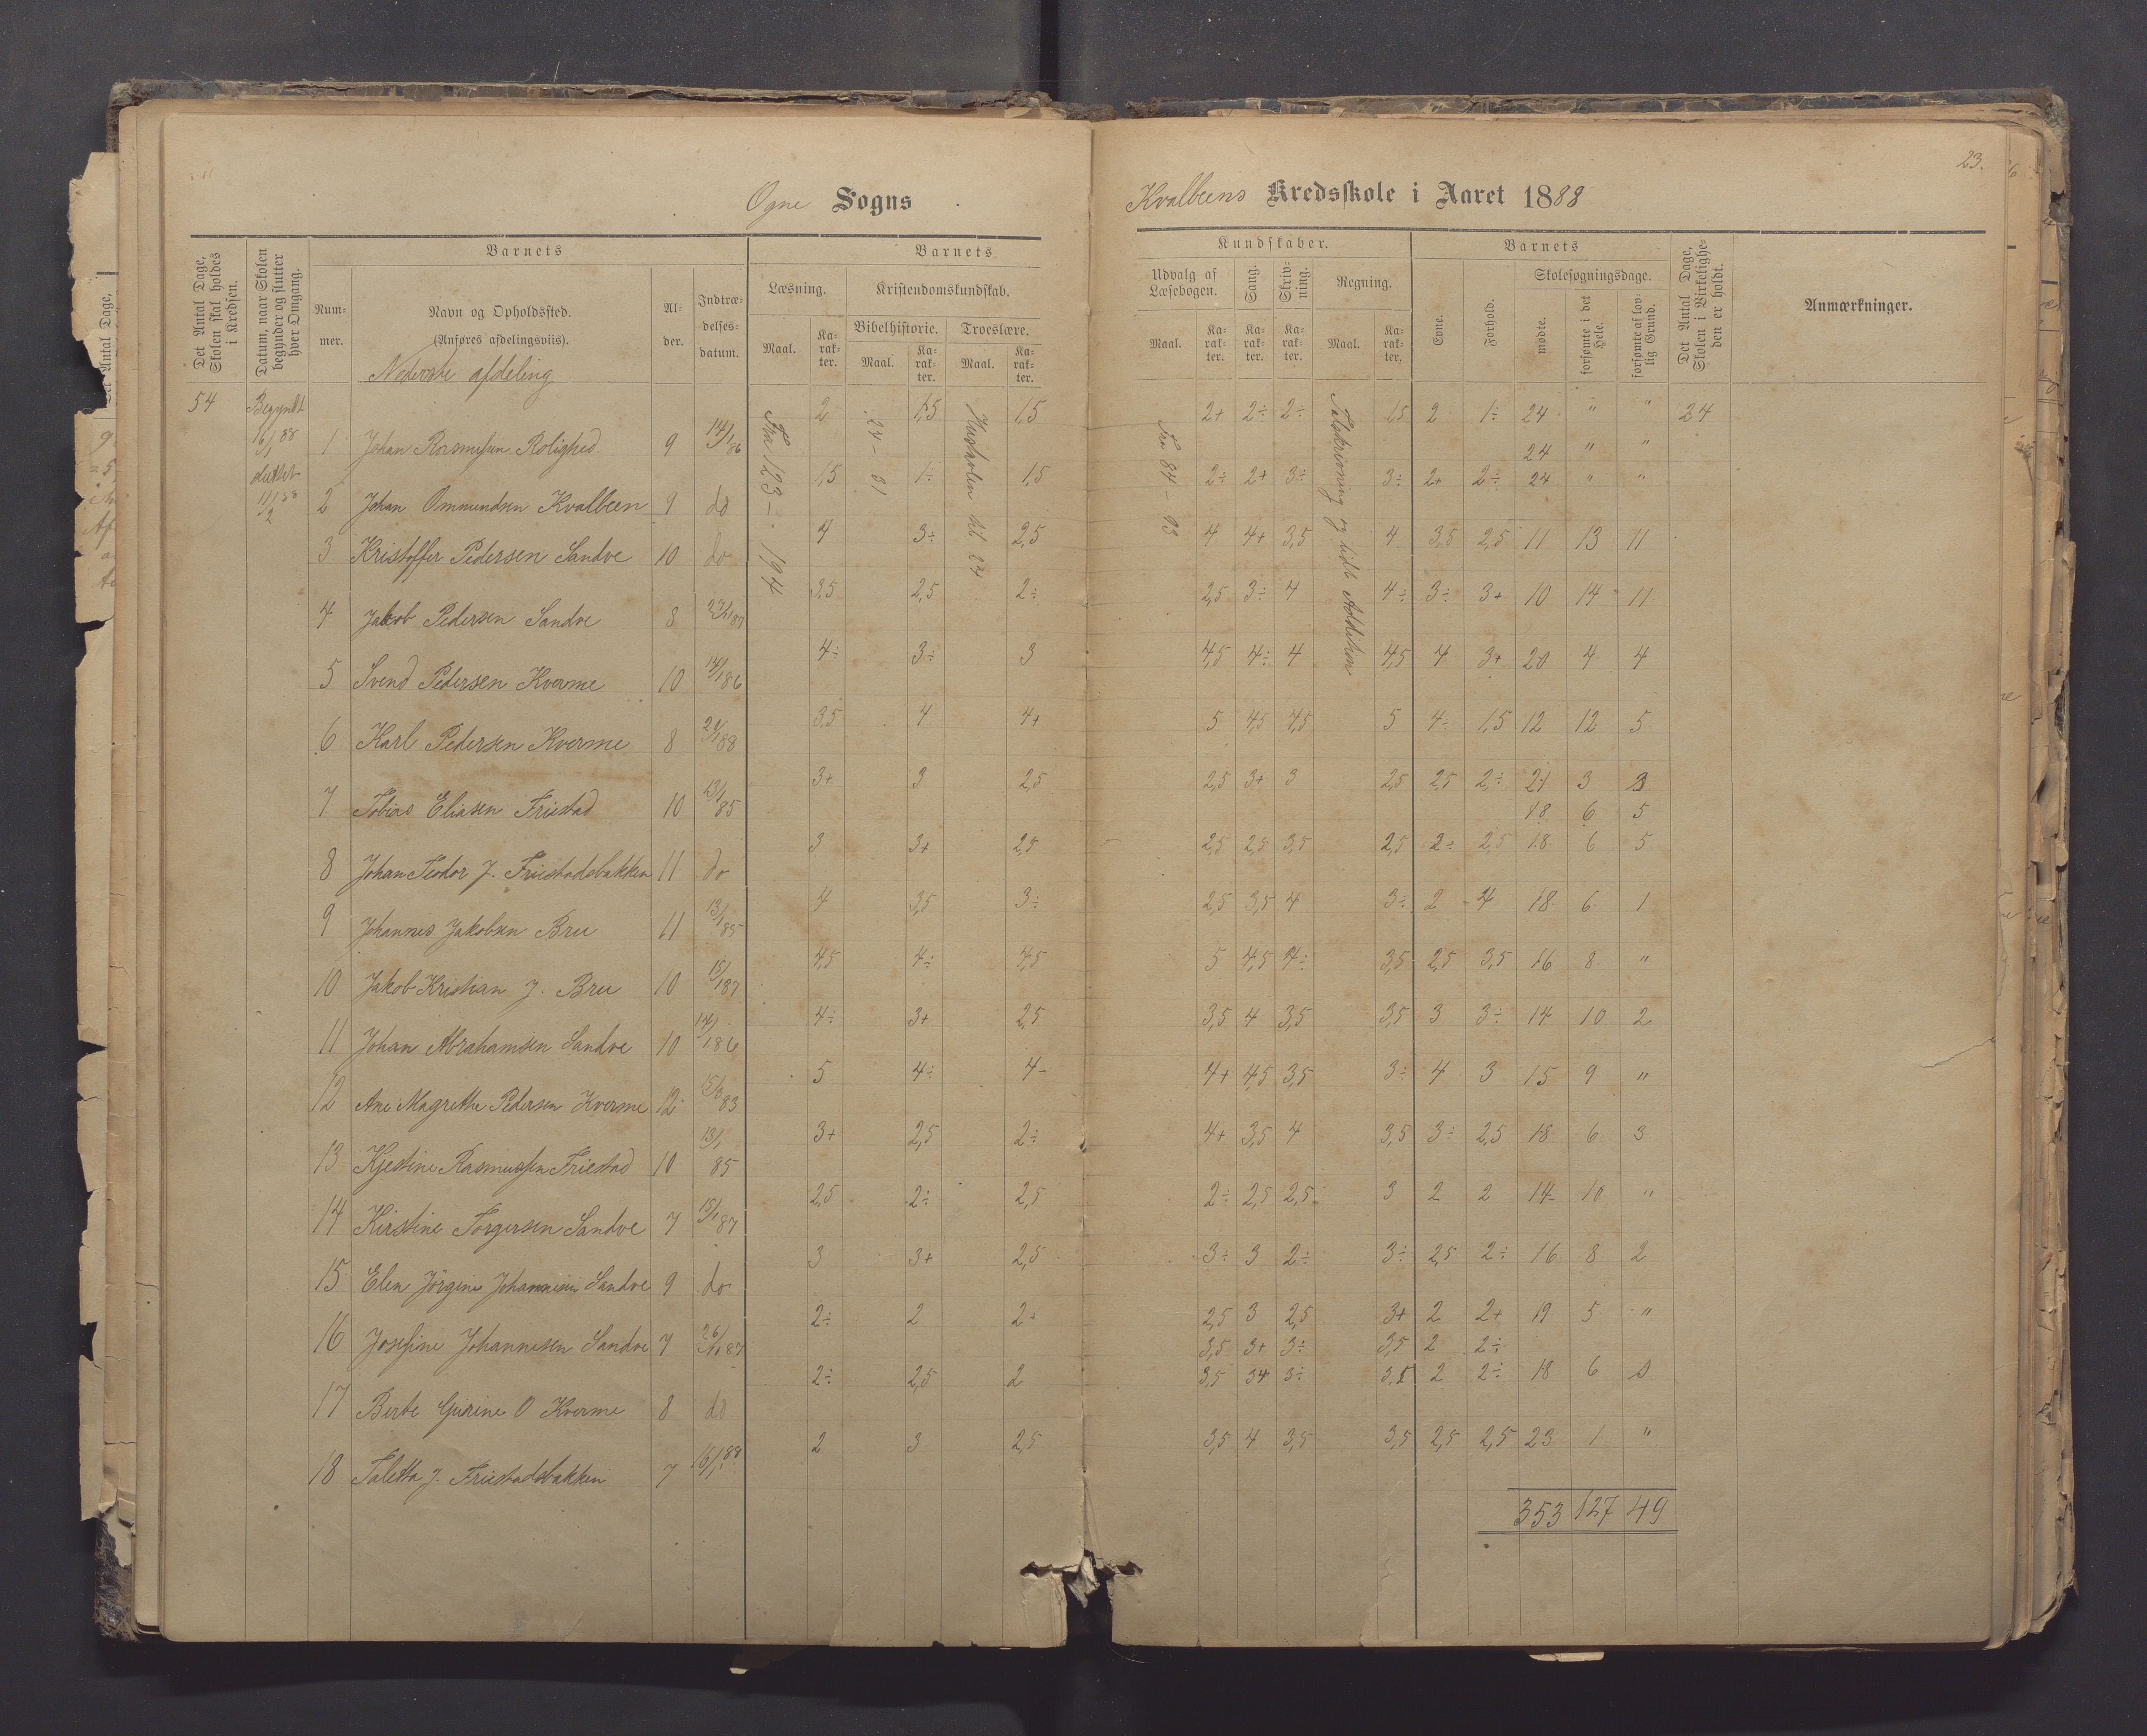 23.
Ogne Sogns
Kvalbeens Kredsskole i Aaret 1888
Det Antal Dage, Skolen skal holdes i Kredsen.
Datum, naar Skolen begynder og slutter hver Omgang.
Barnets
Num-
mer.
Navn og Opholdssted.
(Anføres afdelingsviis).
Nederste afdeling
Al-
der.
Indtræ-
delses-
datum.
Barnets
Læsning.
Kristendomskundskab.
Bibelhistorie. Troeslære.
Maal. Ka-rak-ter. Maal. Ka-rak-ter. Maal. Ka-rak-ter.
Kundskaber.
Udvalg af Læsebogen.
Sang.
Skriv-ning.
Regning.
Maal. Ka-rak-ter. Ka-rak-ter. Ka-rak-ter. Maal. Ka-rak-ter.
Barnets
Evne.
Forhold.
Skolesøgningsdage.
mødte.
forsømte i det Hele.
forsømte af lov-lig Grund.
Det Antal Dage, Skolen i Virkelighe-den er holdt.
Anmærkninger.
54
Begyndt
16/1 88
sluttet
11/2 88
Fra 123 - 194
24 - 31
Hustavlen til 24
Fra 84 - 93
Talskrivning og lidt Addition
1 Johan Rasmusen Rolighed 9 14/1 86 2 1,5 1,5 2+ 2÷ 2÷ 1,5 2 1÷ 24 " " 24
24 " "
2 Johan Ommundsen Kvalbeen 9 do 1,5 1÷ 1,5 2÷ 2+ 3÷ 3÷ 2+ 2÷ 24 " "
3 Kristoffer Pedersen Sandve 10 do 4 3÷ 2,5 4 4+ 3,5 4 3,5 2,5 11 13 11
4 Jakob Pedersen Sandve 8 3,5 2,5 2÷ 2,5 3÷ 4 4÷ 3÷ 3+ 10 14 11
5 Svend Pedersen Kverme 10 14/1 86 4÷ 3÷ 3 4,5 4÷ 4 4,5 4 3+ 20 4 4
6 Karl Pedersen Kverme 8 3,5 4 4+ 5 4,5 4,5 5 4÷ 1,5 12 12 5
7 Tobias Eliasen Friestad 10 13/1 85 3+ 3 2,5 2,5 3+ 3 2,5 2,5 2÷ 21 3 3
18 6 5
8 Johan Teodor J. Friestadsbakken 11 do 3 3+ 2,5 2,5 2,5 3,5 2,5 2÷ 2,5 18 6 5
9 Johannes Jakobsen Bru 11 13/1 85 4 3,5 3÷ 2,5 3,5 4 3÷ 2 4 18 6 1
10 Jakob Kristian J. Bru 10 15/1 87 4,5 4÷ 4,5 5 4,5 4÷ 3,5 2,5 3,5 16 8 "
11 Johan Abrahamsen Sandve 10 14/1 86 4÷ 3+ 2,5 3,5 4 3,5 3,5 3 3÷ 14 10 2
12 Ane Magrethe Pedersen Kverme 12 83 5 4÷ 4- 4+ 4,5 3,5 3÷ 4 3 15 9 "
13 Kjestine Rasmussen Friestad 10 13/1 85 3+ 2,5 2÷ 4+ 3,5 4 3,5 3÷ 2,5 18 6 3
14 Kirstine Torgersen Sandve 7 15/1 87 2,5 2÷ 2,5 2÷ 2,5 2,5 3 2 2 14 10 "
15 Elen Jörgine Johannesen Sandve 9 do 3 3+ 2,5 3÷ 3 2÷ 3÷ 2,5 2÷ 16 8 2
16 Josefine Johannesen Sandve 7 2÷ 2 2+ 2,5 3 2,5 3+ 2 2+ 19 5 "
3,5 3+ 3÷ 3,5 2 2÷
17 Berte Gurine O Kverme 8 do 2÷ 2,5 2 3,5 3+ 3÷ 3,5 2 2÷ 18 6
18 Taletta J. Friestadsbakken 7 16/1 88 2 3 2,5 3,5 4 3,5 3,5 2,5 2,5 23 1 "
353 127 49